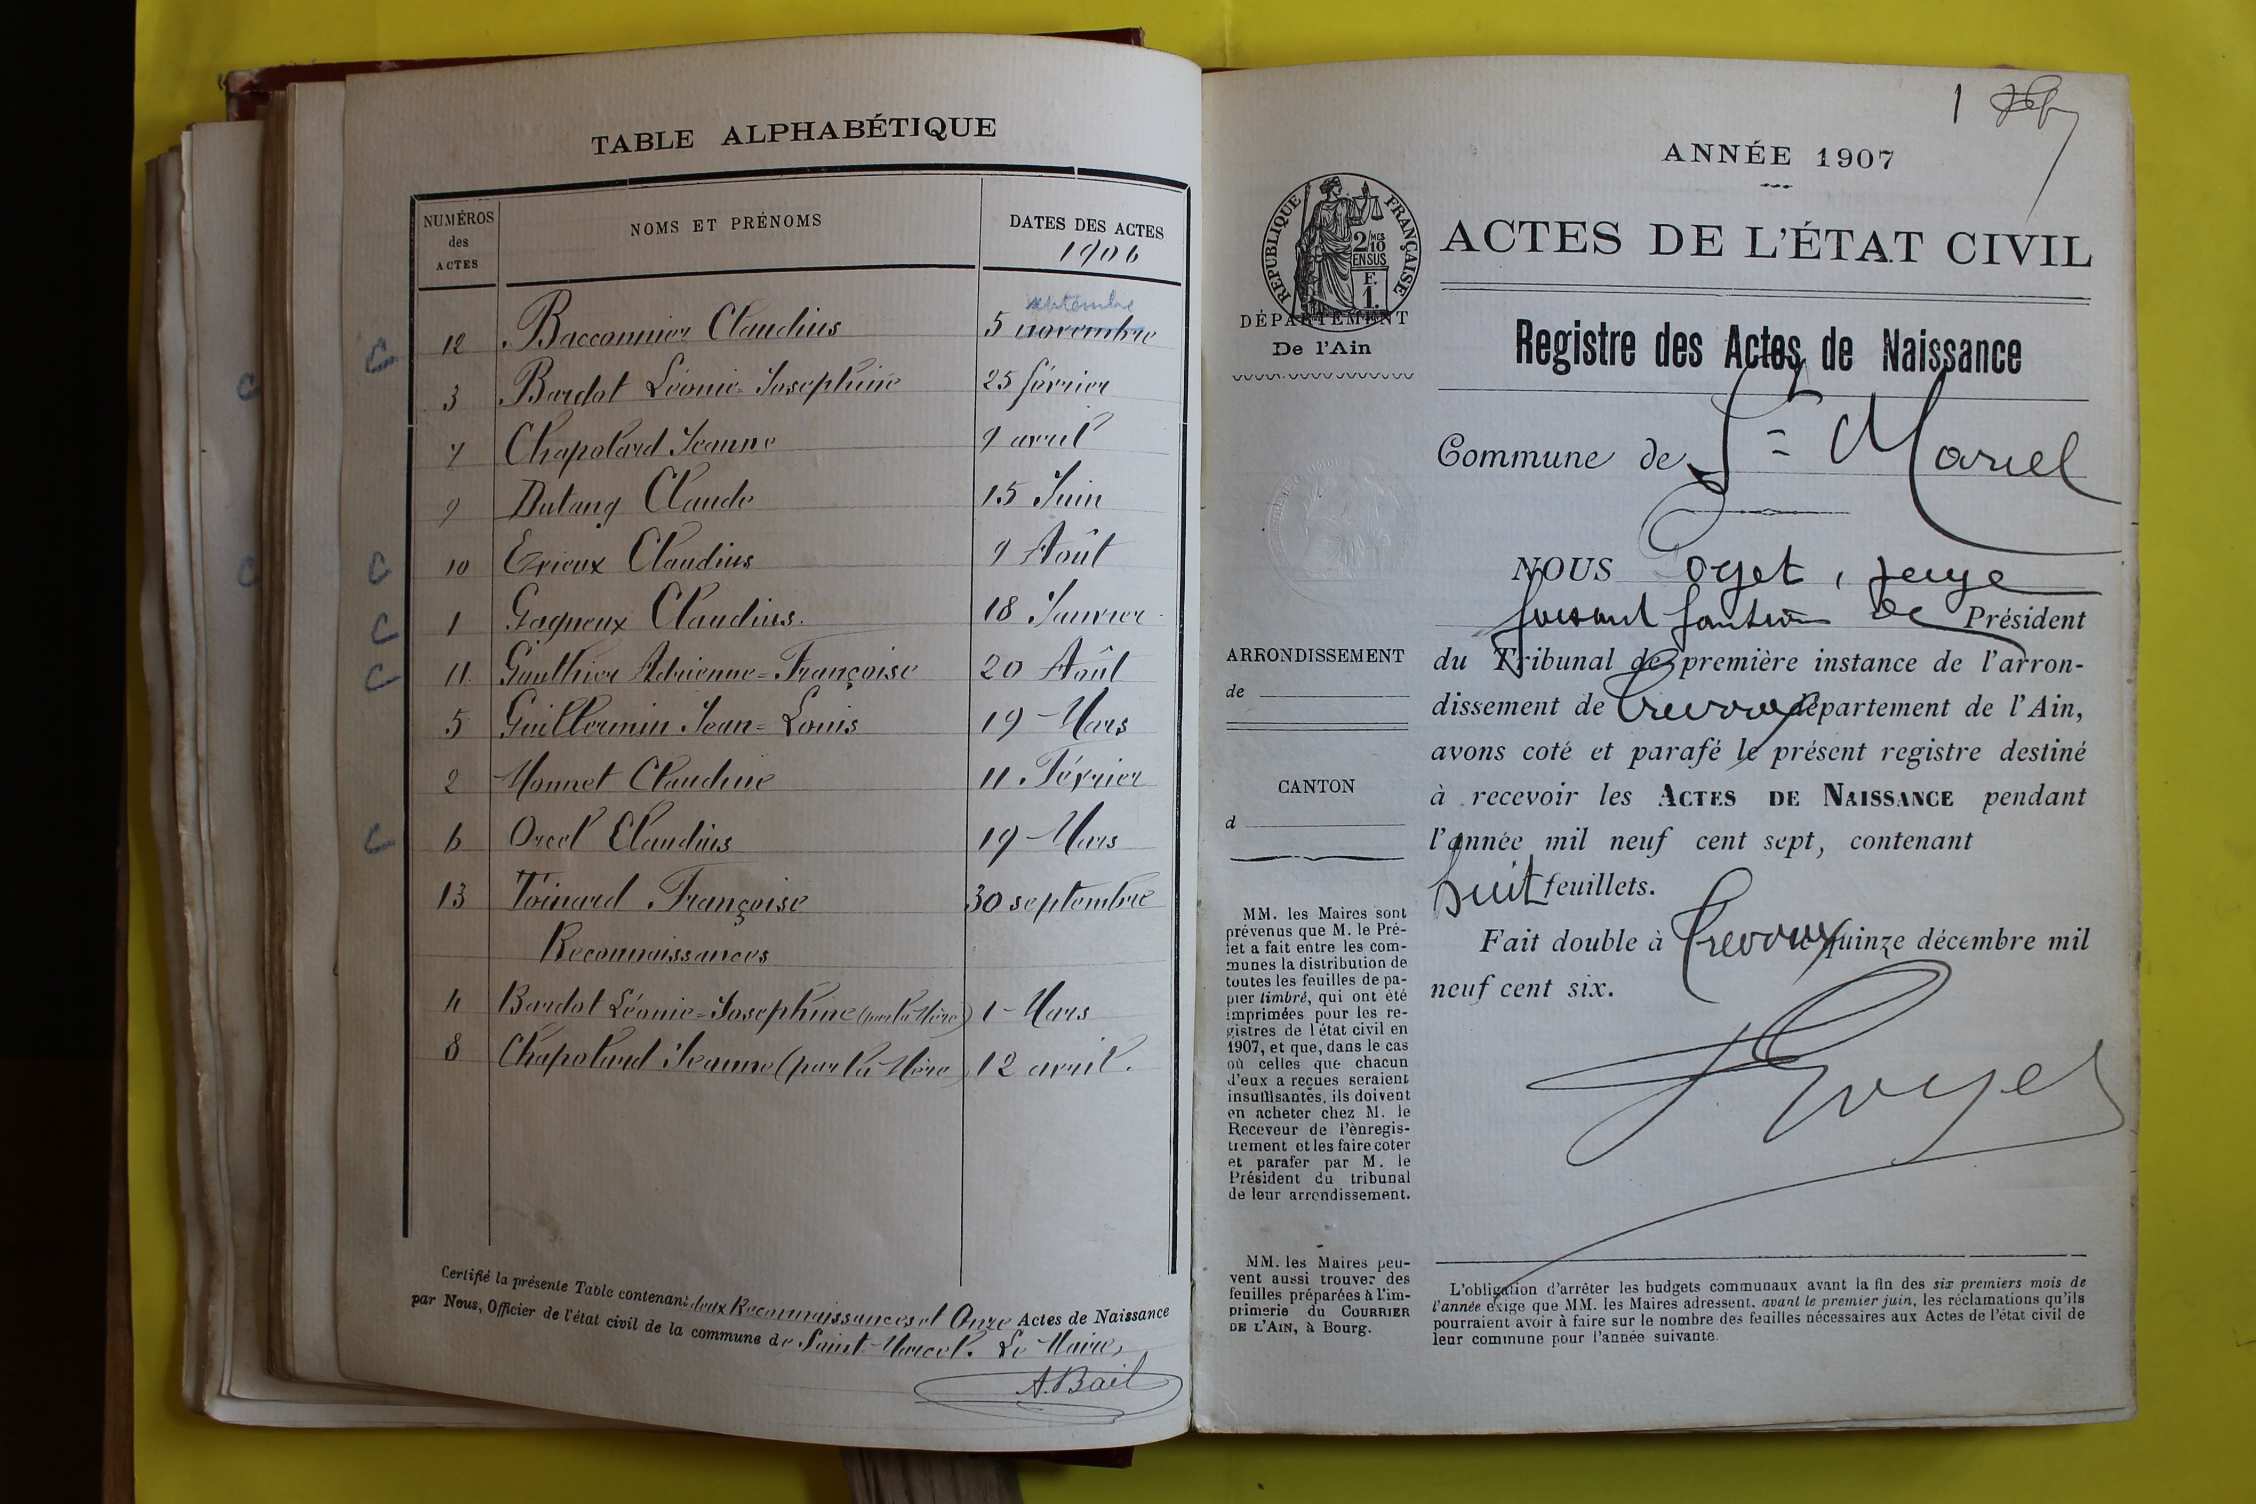 TABLE ALPHABÉTIQUE
NUMÉROS des ACTES NOMS ET PRÉNOMS DATES DES ACTES
1906
septembre
12 Bacconnier Claudius 5 novembre
3 Bardot Léonie-Joséphine 25 février
7 Chapolard Jeanne 9 avril
9 Dutang Claude 15 Juin
10 Erieux Claudius 9 Août
1 Gagneux Claudius. 18 Janvier
11 Gaulthier Adrienne-Françoise 20 Août
5 Guillermin Jean-Louis 19 Mars
2 Monnet Claudine 11 Février
6 Orcel Claudius 19 Mars
13 Toinard Françoise 30 septembre
Reconnaissances
4 Bardot Léonie-Joséphine (par la Mère) 1 Mars
8 Chapolard Jeanne (par la Mère) 12 avril.
Certifié la présente Table contenant deux Reconnaissances et Onze Actes de Naissance
par Nous, Officier de l'état civil de la commune de Saint-Marcel. Le Maire,
A. Bail
1
ANNÉE 1907
RÉPUBLIQUE FRANÇAISE
2/10 MES
EN SUS
F.
1.
ACTES DE L'ÉTAT CIVIL
DÉPARTEMENT
De l'Ain
Registre des Actes de Naissance
Commune de St Marcel
NOUS Poyet, juge
faisant fonction de Président
du Tribunal de première instance de l'arron-
dissement de Trévoux département de l'Ain,
avons coté et parafé le présent registre destiné
à recevoir les ACTES DE NAISSANCE pendant
l'année mil neuf cent sept, contenant
huit feuillets.
Fait double à Trévoux le quinze décembre mil
neuf cent six.
Poyet
ARRONDISSEMENT
de
CANTON
d
MM. les Maires sont
prévenus que M. le Pré-
fet a fait entre les com-
munes la distribution de
toutes les feuilles de pa-
pier timbré, qui ont été
imprimées pour les re-
gistres de l'état civil en
1907, et que, dans le cas
où celles que chacun
d'eux a reçues seraient
insuffisantes, ils doivent
en acheter chez M. le
Receveur de l'enregis-
trement et les faire coter
et parafer par M. le
Président du tribunal
de leur arrondissement.
MM. les Maires peu-
vent aussi trouver des
feuilles préparées à l'im-
primerie du COURRIER
DE L'AIN, à Bourg.
L'obligation d'arrêter les budgets communaux avant la fin des six premiers mois de
l'année exige que MM. les Maires adressent, avant le premier juin, les réclamations qu'ils
pourraient avoir à faire sur le nombre des feuilles nécessaires aux Actes de l'état civil de
leur commune pour l'année suivante.